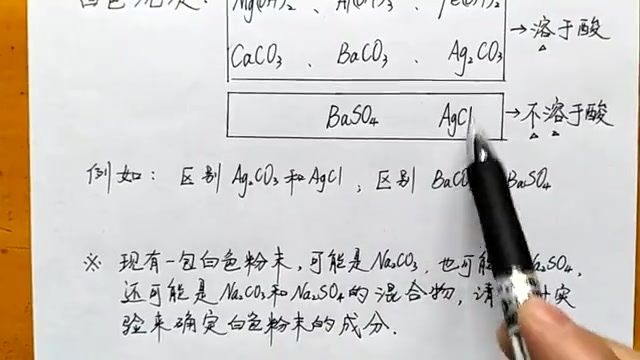 白色沉淀: Mg(OH)₂ 、 Al(OH)₃ 、 Fe(OH)₂
CaCO₃ 、 BaCO₃ 、 Ag₂CO₃ →溶于酸
BaSO₄ AgCl →不溶于酸
例如: 区别 Ag₂CO₃和AgCl , 区别 BaCO BaSO₄
※ 现有一包白色粉末,可能是Na₂CO₃,也可能 Na₂SO₄,
还可能是Na₂CO₃和Na₂SO₄的混合物,请 计实
验来确定白色粉末的成分.